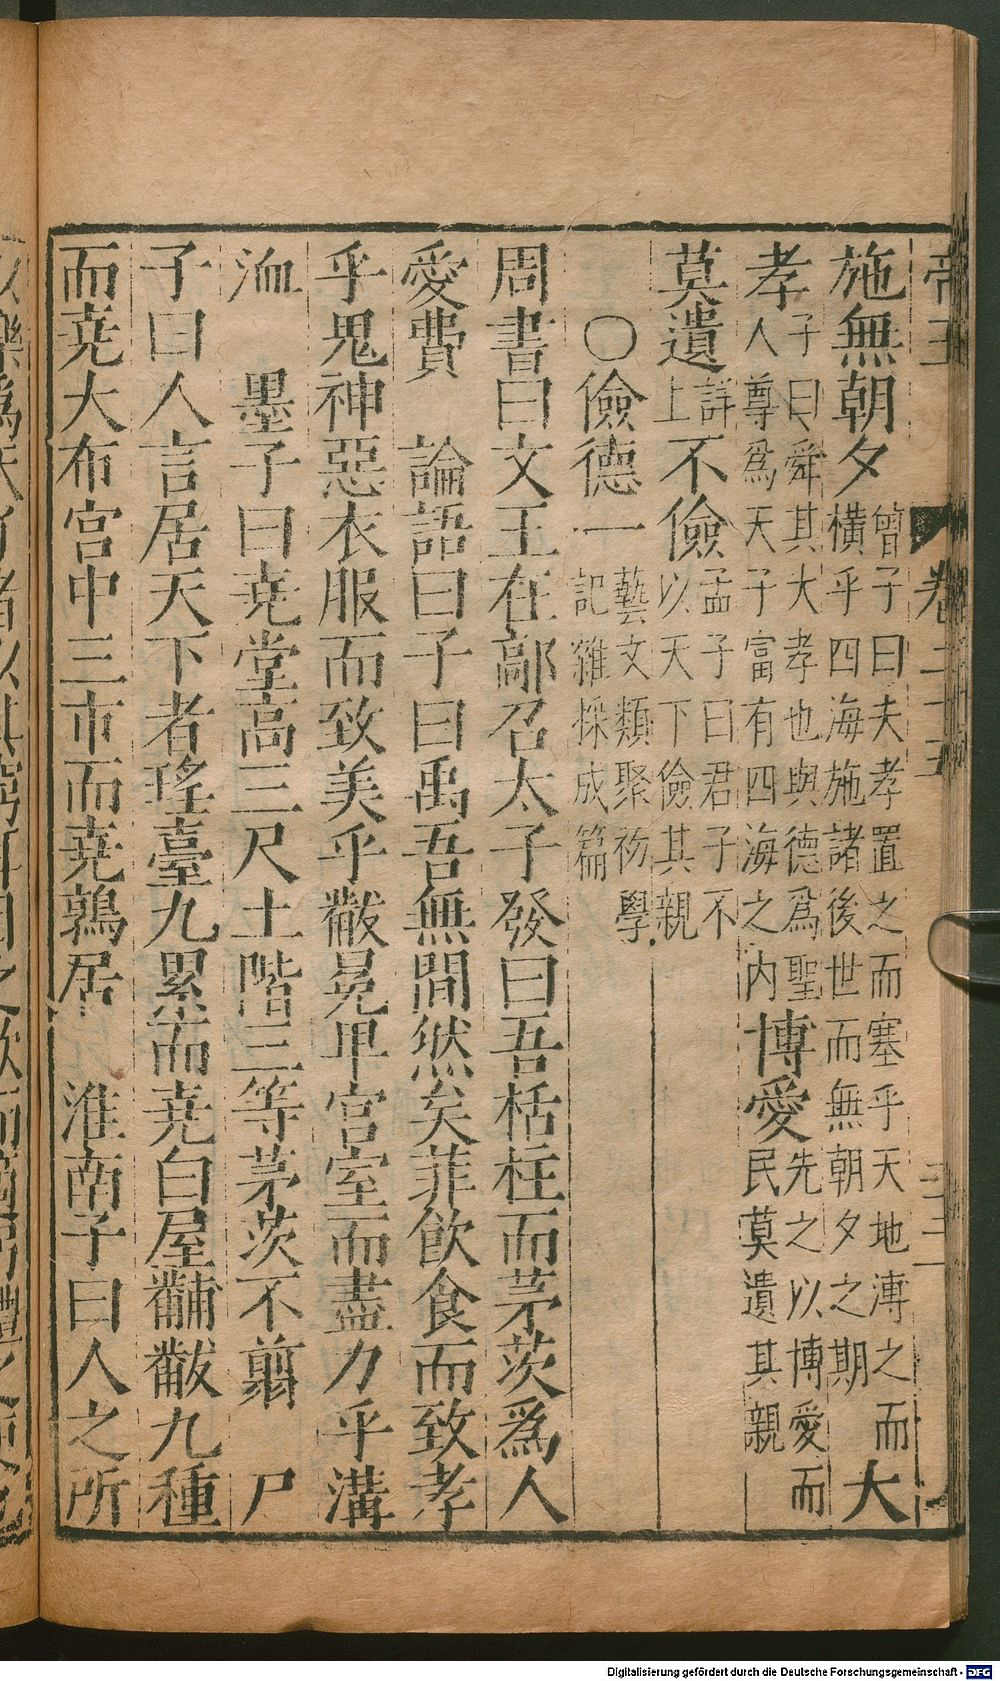 帝王 卷二十五
施無朝夕曾子曰夫孝置之而塞乎天地溥之而橫乎四海施諸後世而無朝夕之期大
孝子曰舜其大孝也與德為聖人尊為天子富有四海之內博愛先之以博愛而民莫遺其親
莫遺詳上不儉孟子曰君子不以天下儉其親
○儉德一藝文類聚初學記雜採成篇
周書曰文王在鄗召太子發曰吾栝柱而茅茨爲人
愛費 論語曰子曰禹吾無間然矣菲飲食而致孝
乎鬼神惡衣服而致美乎黻冕卑宮室而盡力乎溝
洫 墨子曰堯堂高三尺土階三等茅茨不翦 尸
子曰人言居天下者瑤臺九累而堯白屋黼黻九種
而堯大布宮中三市而堯鶉居 淮南子曰人之所
Digitalisierung gefördert durch die Deutsche Forschungsgemeinschaft - DFG